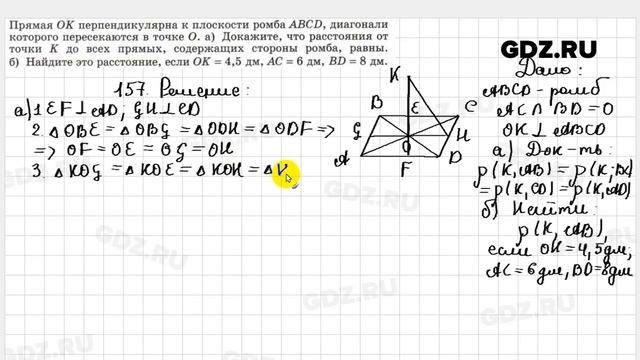 Прямая OK перпендикулярна к плоскости ромба ABCD, диагонали
которого пересекаются в точке O. а) Докажите, что расстояния от
точки K до всех прямых, содержащих стороны ромба, равны.
б) Найдите это расстояние, если OK = 4,5 дм, AC = 6 дм, BD = 8 дм.
GDZ.RU
157. Решение:
а) 1. EF ⊥ AD; GH ⊥ CD
2. △OBE = △OBG = △ODH = △ODF =>
=> OF = OE = OG = OH
3. △KOG = △KOE = △KOH = △V
K
B
E
C
G
O
H
A
F
D
Дано:
ABCD - ромб
AC ∩ BD = O
OK ⊥ ABCD
а) Док-ть:
p(K, AB) = p(K, BC)
= p(K, CD) = p(K, AD)
б) Найти:
p(K, AB),
если OK = 4,5 дм,
AC = 6 дм, BD = 8 дм
GDZ.RU
GDZ.RU
GDZ.RU
GDZ.RU